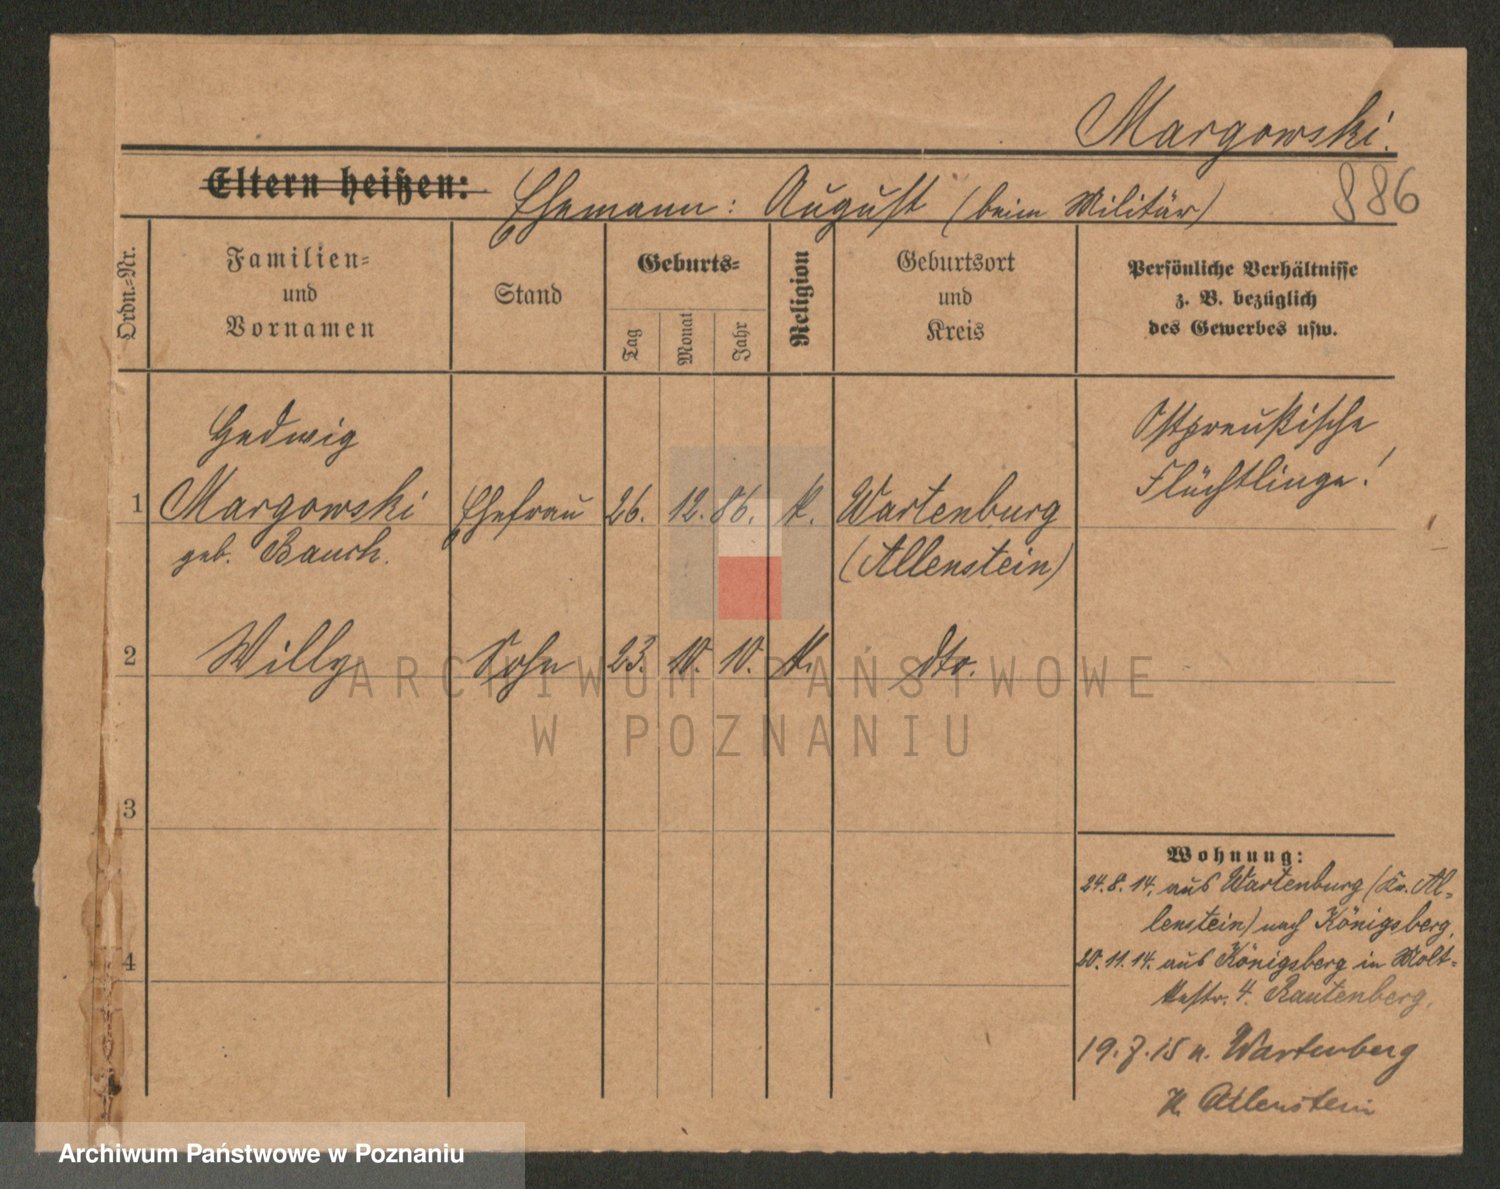 Margowski.
886
Eltern heißen: Ehemann: August (beim Militär)
Ordn.-Nr.
Familien-
und
Vornamen
Stand
Geburts-
Tag
Monat
Jahr
Religion
Geburtsort
und
Kreis
Persönliche Verhältnisse
z. B. bezüglich
des Gewerbes usw.
Hedwig
1 Margowski Ehefrau 26. 12. 86. k. Wartenburg
geb. (Allenstein)
Ostpreußische
Flüchtlinge!
2 Willy Sohn 23. 10. 10. k. dto.
3
4
Wohnung:
24.8.14. aus Wartenburg (Kr. Al-
lenstein) nach Königsberg.
20.11.14. aus Königsberg in Molt-
kestr. 4. Rautenberg.
19.7.15 n. Wartenberg
K. Allenstein
ARCHIWUM PAŃSTWOWE
W POZNANIU
Archiwum Państwowe w Poznaniu